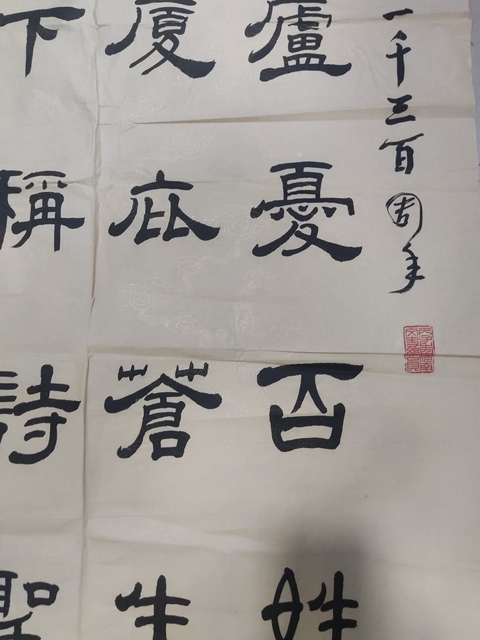 一千三百周年
廬憂百姓
厦庇蒼生
下稱詩聖